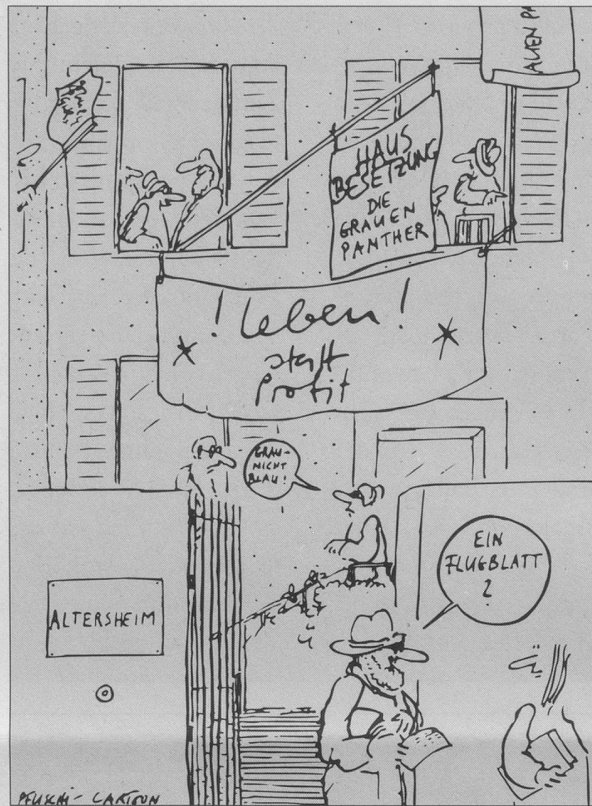 AUEN PA
HAUS
BESETZUNG
DIE
GRAUEN
PANTHER
! leben !
statt
Profit
GRAU-
NICHT
BLAU!
EIN
FLUGBLATT
?
ALTERSHEIM
PFUSCHI-CARTOON